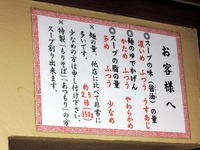 お客様へ
◎スープの味(醤油)の量
濃いめ ふつう うすあじ
◎麺のゆでかげん
かため ふつう やわらかめ
◎スープの脂の量
多め ふつう 少なめ
※麺の量、他店に比べ非常に
多いです。(約2.5倍350g)
少なめの方は申し付け下さい。
※特製「もりそば」「あつもり」の方
スープ割り出来ます。